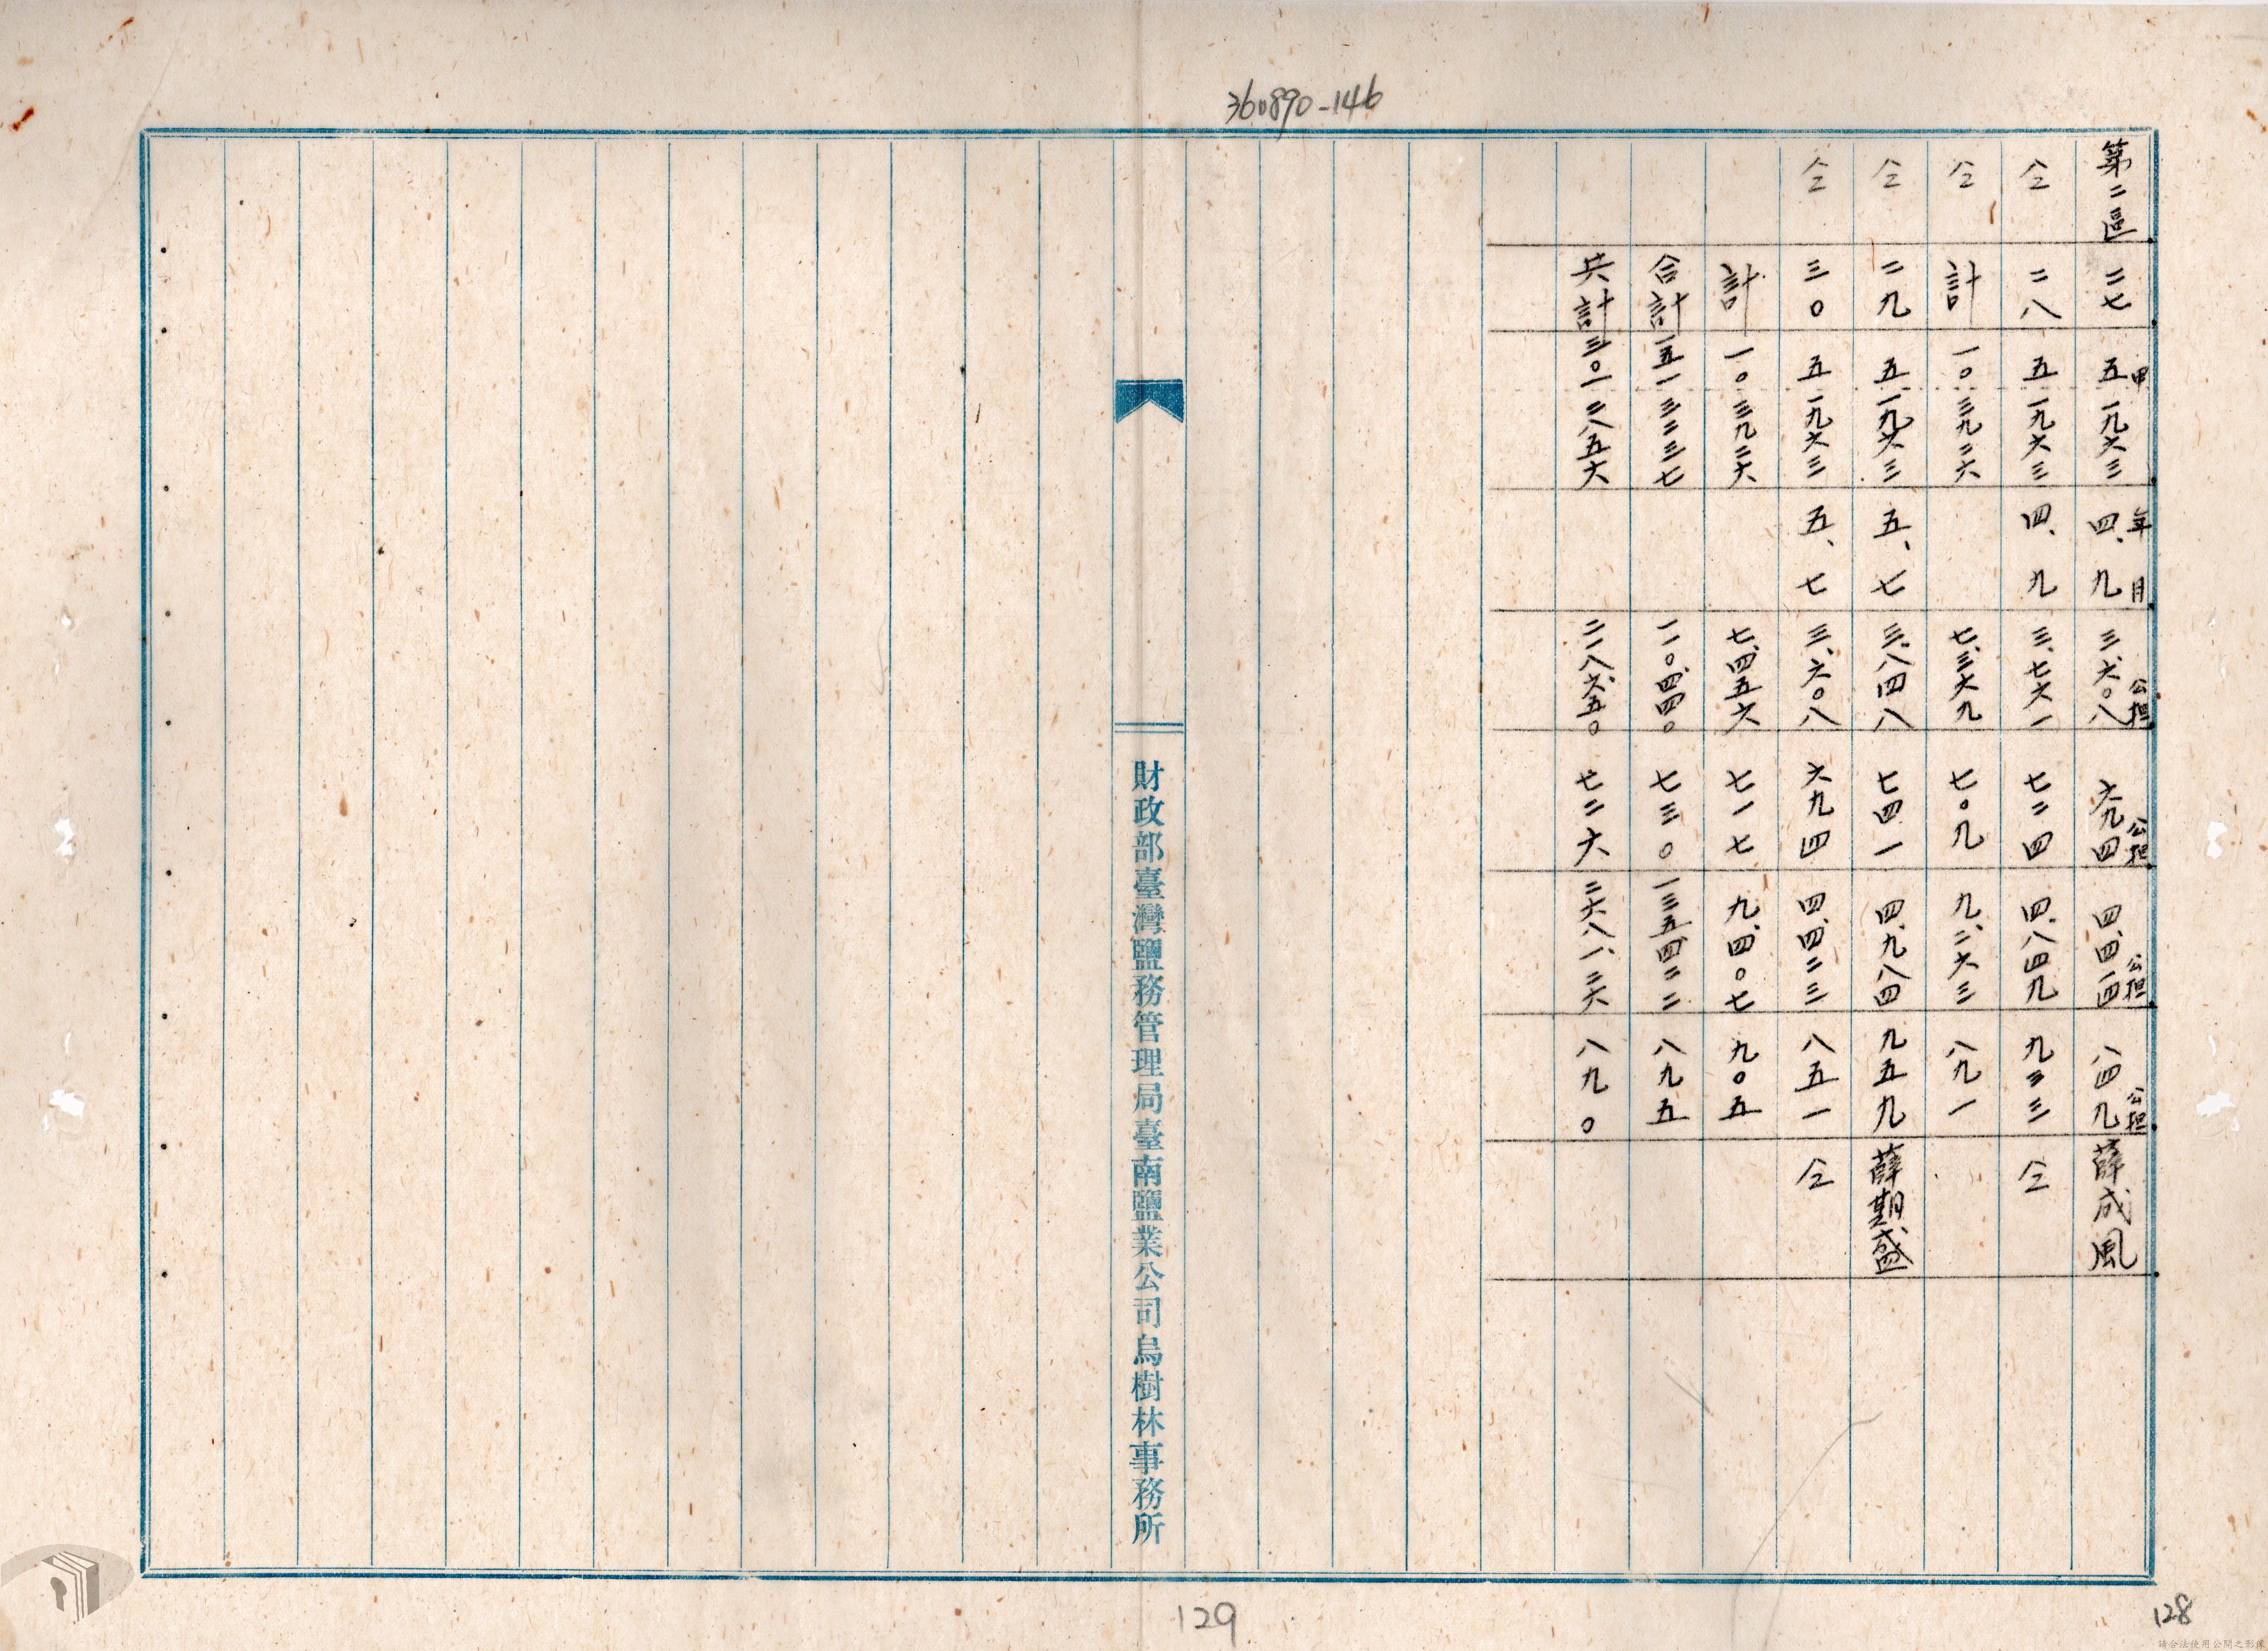 360890-146
第二區 二七 五甲一九六三 四年、九月 三、六〇八公担 六九四公担 四、四一四公担 八四九公担 薛成風
仝 二八 五 一九六三 四、九 三、七六一 七二四 四、八四九 九三三 仝
仝 計 一〇 三九二六 七、三六九 七〇九 九、二六三 八九一
仝 二九 五 一九六三 五、七 三、八四八 七四一 四、九八四 九五九 薛期盛
仝 三〇 五 一九六三 五、七 三、六〇八 六九四 四、四二三 八五一 仝
計 一〇 三九二六 七、四五六 七一七 九、四〇七 九〇五
合計 一五一 三二三七 一一〇、四四〇 七三〇 一三五、四二二 八九五
共計 三〇一 二八五六 二一八、六五〇 七二六 二六八一、三六 八九〇
財政部臺灣鹽務管理局臺南鹽業公司烏樹林事務所
129
128
請合法使用公開之影像